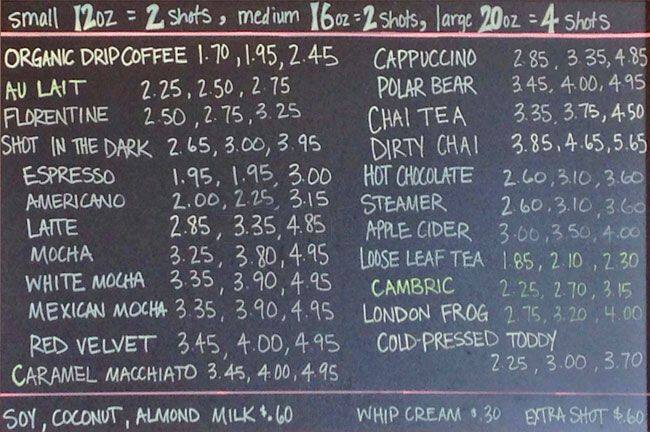 small 12oz = 2 shots, medium 16oz = 2 shots, large 20oz = 4 shots
ORGANIC DRIP COFFEE 1.70, 1.95, 2.45
AU LAIT 2.25, 2.50, 2.75
FLORENTINE 2.50, 2.75, 3.25
SHOT IN THE DARK 2.65, 3.00, 3.95
ESPRESSO 1.95, 1.95, 3.00
AMERICANO 2.00, 2.25, 3.15
LATTE 2.85, 3.35, 4.85
MOCHA 3.25, 3.80, 4.95
WHITE MOCHA 3.35, 3.90, 4.95
MEXICAN MOCHA 3.35, 3.90, 4.95
RED VELVET 3.45, 4.00, 4.95
CARAMEL MACCHIATO 3.45, 4.00, 4.95
CAPPUCCINO 2.85, 3.35, 4.85
POLAR BEAR 3.45, 4.00, 4.95
CHAI TEA 3.35, 3.75, 4.50
DIRTY CHAI 3.85, 4.65, 5.65
HOT CHOCOLATE 2.60, 3.10, 3.60
STEAMER 2.60, 3.10, 3.60
APPLE CIDER 3.00, 3.50, 4.00
LOOSE LEAF TEA 1.85, 2.10, 2.30
CAMBRIC 2.25, 2.70, 3.15
LONDON FROG 2.75, 3.20, 4.00
COLD-PRESSED TODDY
2.25, 3.00, 3.70
SOY, COCONUT, ALMOND MILK $.60 WHIP CREAM $.30 EXTRA SHOT $.60